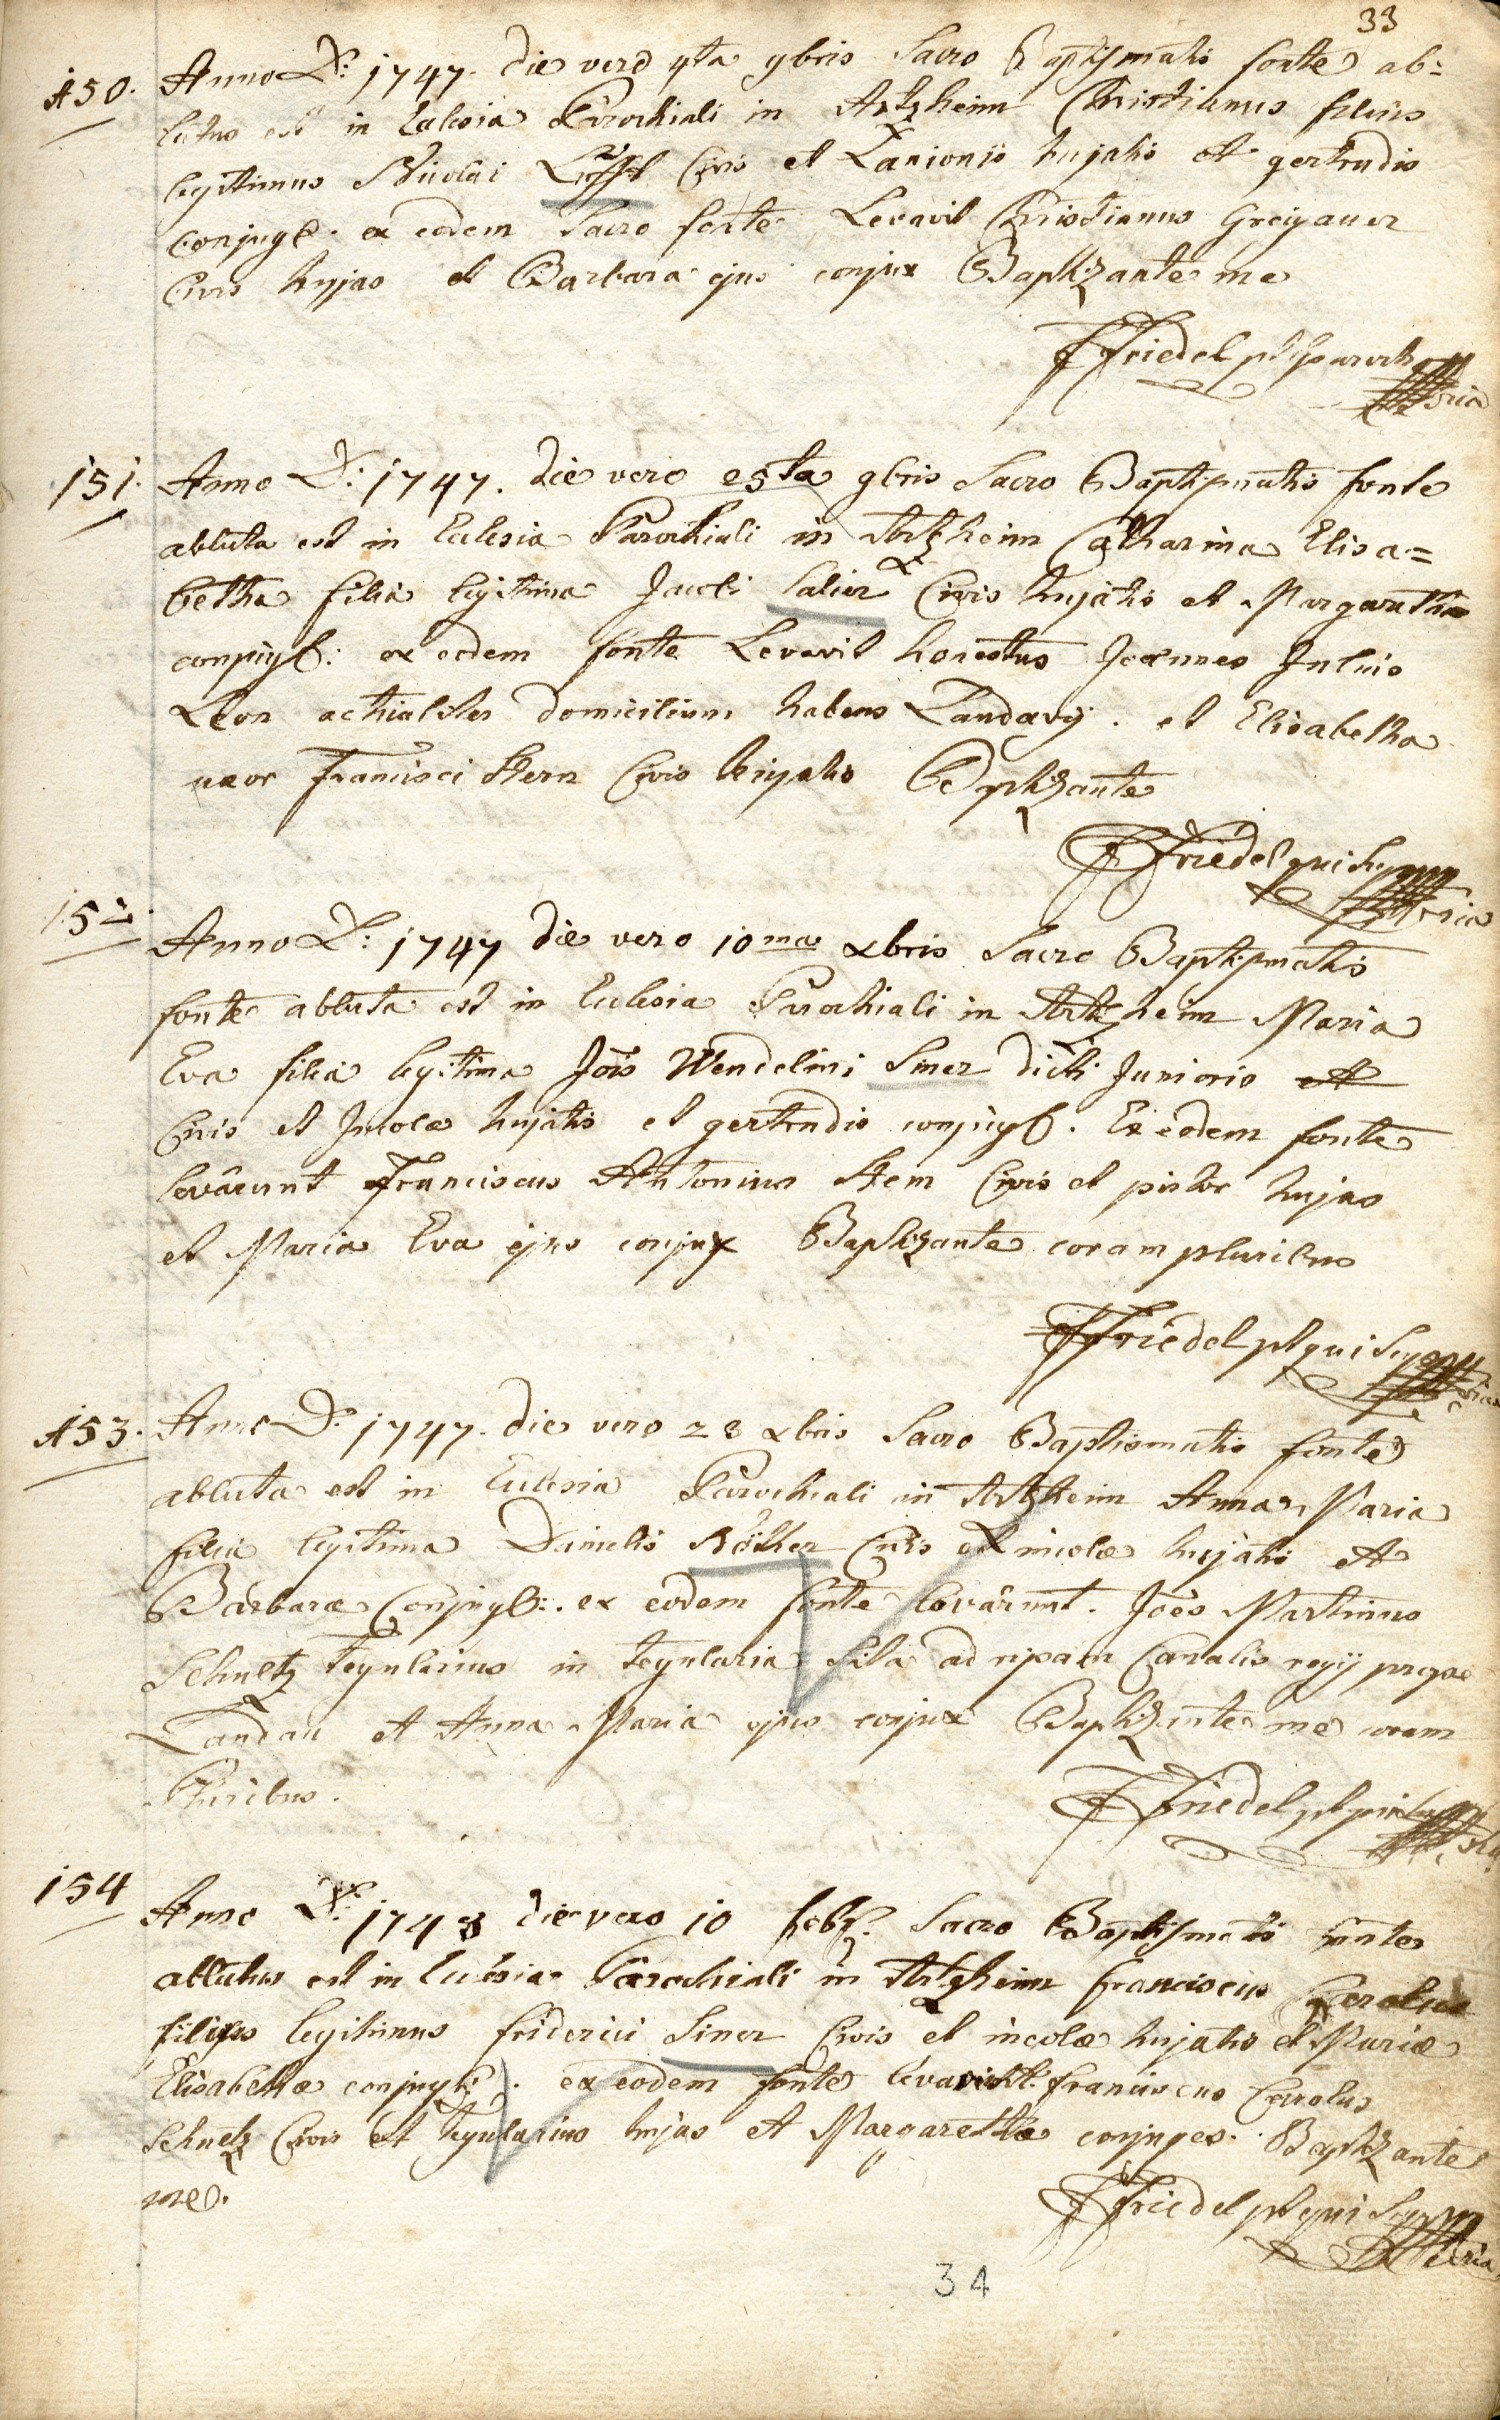 33
150. Anno D: 1747. die vero 4ta 9bris Sacro Baptismatis fonte ab=
lutus est in Eclesia Parochiali in Artzheim Christianus filius
legitimus Nicolai Civis et Lanionis hujatis et gertrudis
conjugum. ex eodem Sacro fonte Levavit Christianus Greigauer
Civis hujas et Barbara ejus conjux Baptizante me
Friedel pt paroch
151. Anno D: 1747. die vero 25ta 9bris Sacro Baptismatis fonte
abluta est in Eclesia Parochiali in Artzheim Catharina Elisa=
betha filia legitima Jacobi Salier Civis hujatis et Margaretha
conjugum: ex eodem fonte Levavit honestus Joannes Julius
Leon actialiter domicilium habens Landavij. et Elisabetha
uxor Francisci Stern Civis hujatis Baptizante
Friedel qui Supra
152. Anno D: 1747 die vero 10ma xbris Sacro Baptismatis
fonte abluta est in Eclesia Parochiali in Artzheim Maria
Eva filia legitima Jois Wendelini Siner dicti Junioris et
Civis et Incolæ hujatis et gertrudis conjugum. Ex eodem fonte
levârunt Franciscus Antonius Stern Civis et pistor hujas
et Maria Eva ejus conjux Baptizante coram pluribus
Friedel pt qui Supra
153. Anno D: 1747. die vero 28 xbris Sacro Baptismatis fonte
abluta est in Eclesia Parochiali in Artzheim Anna Maria
filia legitima Danielis Röther Civis et incolæ hujatis et
Barbaræ Conjugum:. ex eodem fonte levârunt. Joês Martinus
Schultz Tegularius in tegularia Sita ad ripam Canalis regij prope
Landau et Anna Maria ejus conjux Baptizante me coram
Pluribus.
Friedel pt qui Supra
154 Anno D: 1748 die vero 10 feb. Sacro Baptismatis fonte
ablutus est in Eclesia Parochiali in Artzheim Franciscus Carolus
filius legitimus friderici Siner Civis et incolæ hujatis et Mariæ
Elisabethæ conjugum. ex eodem fonte levavit. franciscus Carolus
Schultz Civis et Tegularius hujas et Margaretha conjuges. Baptizante
me.
Friedel pt qui Supra
34